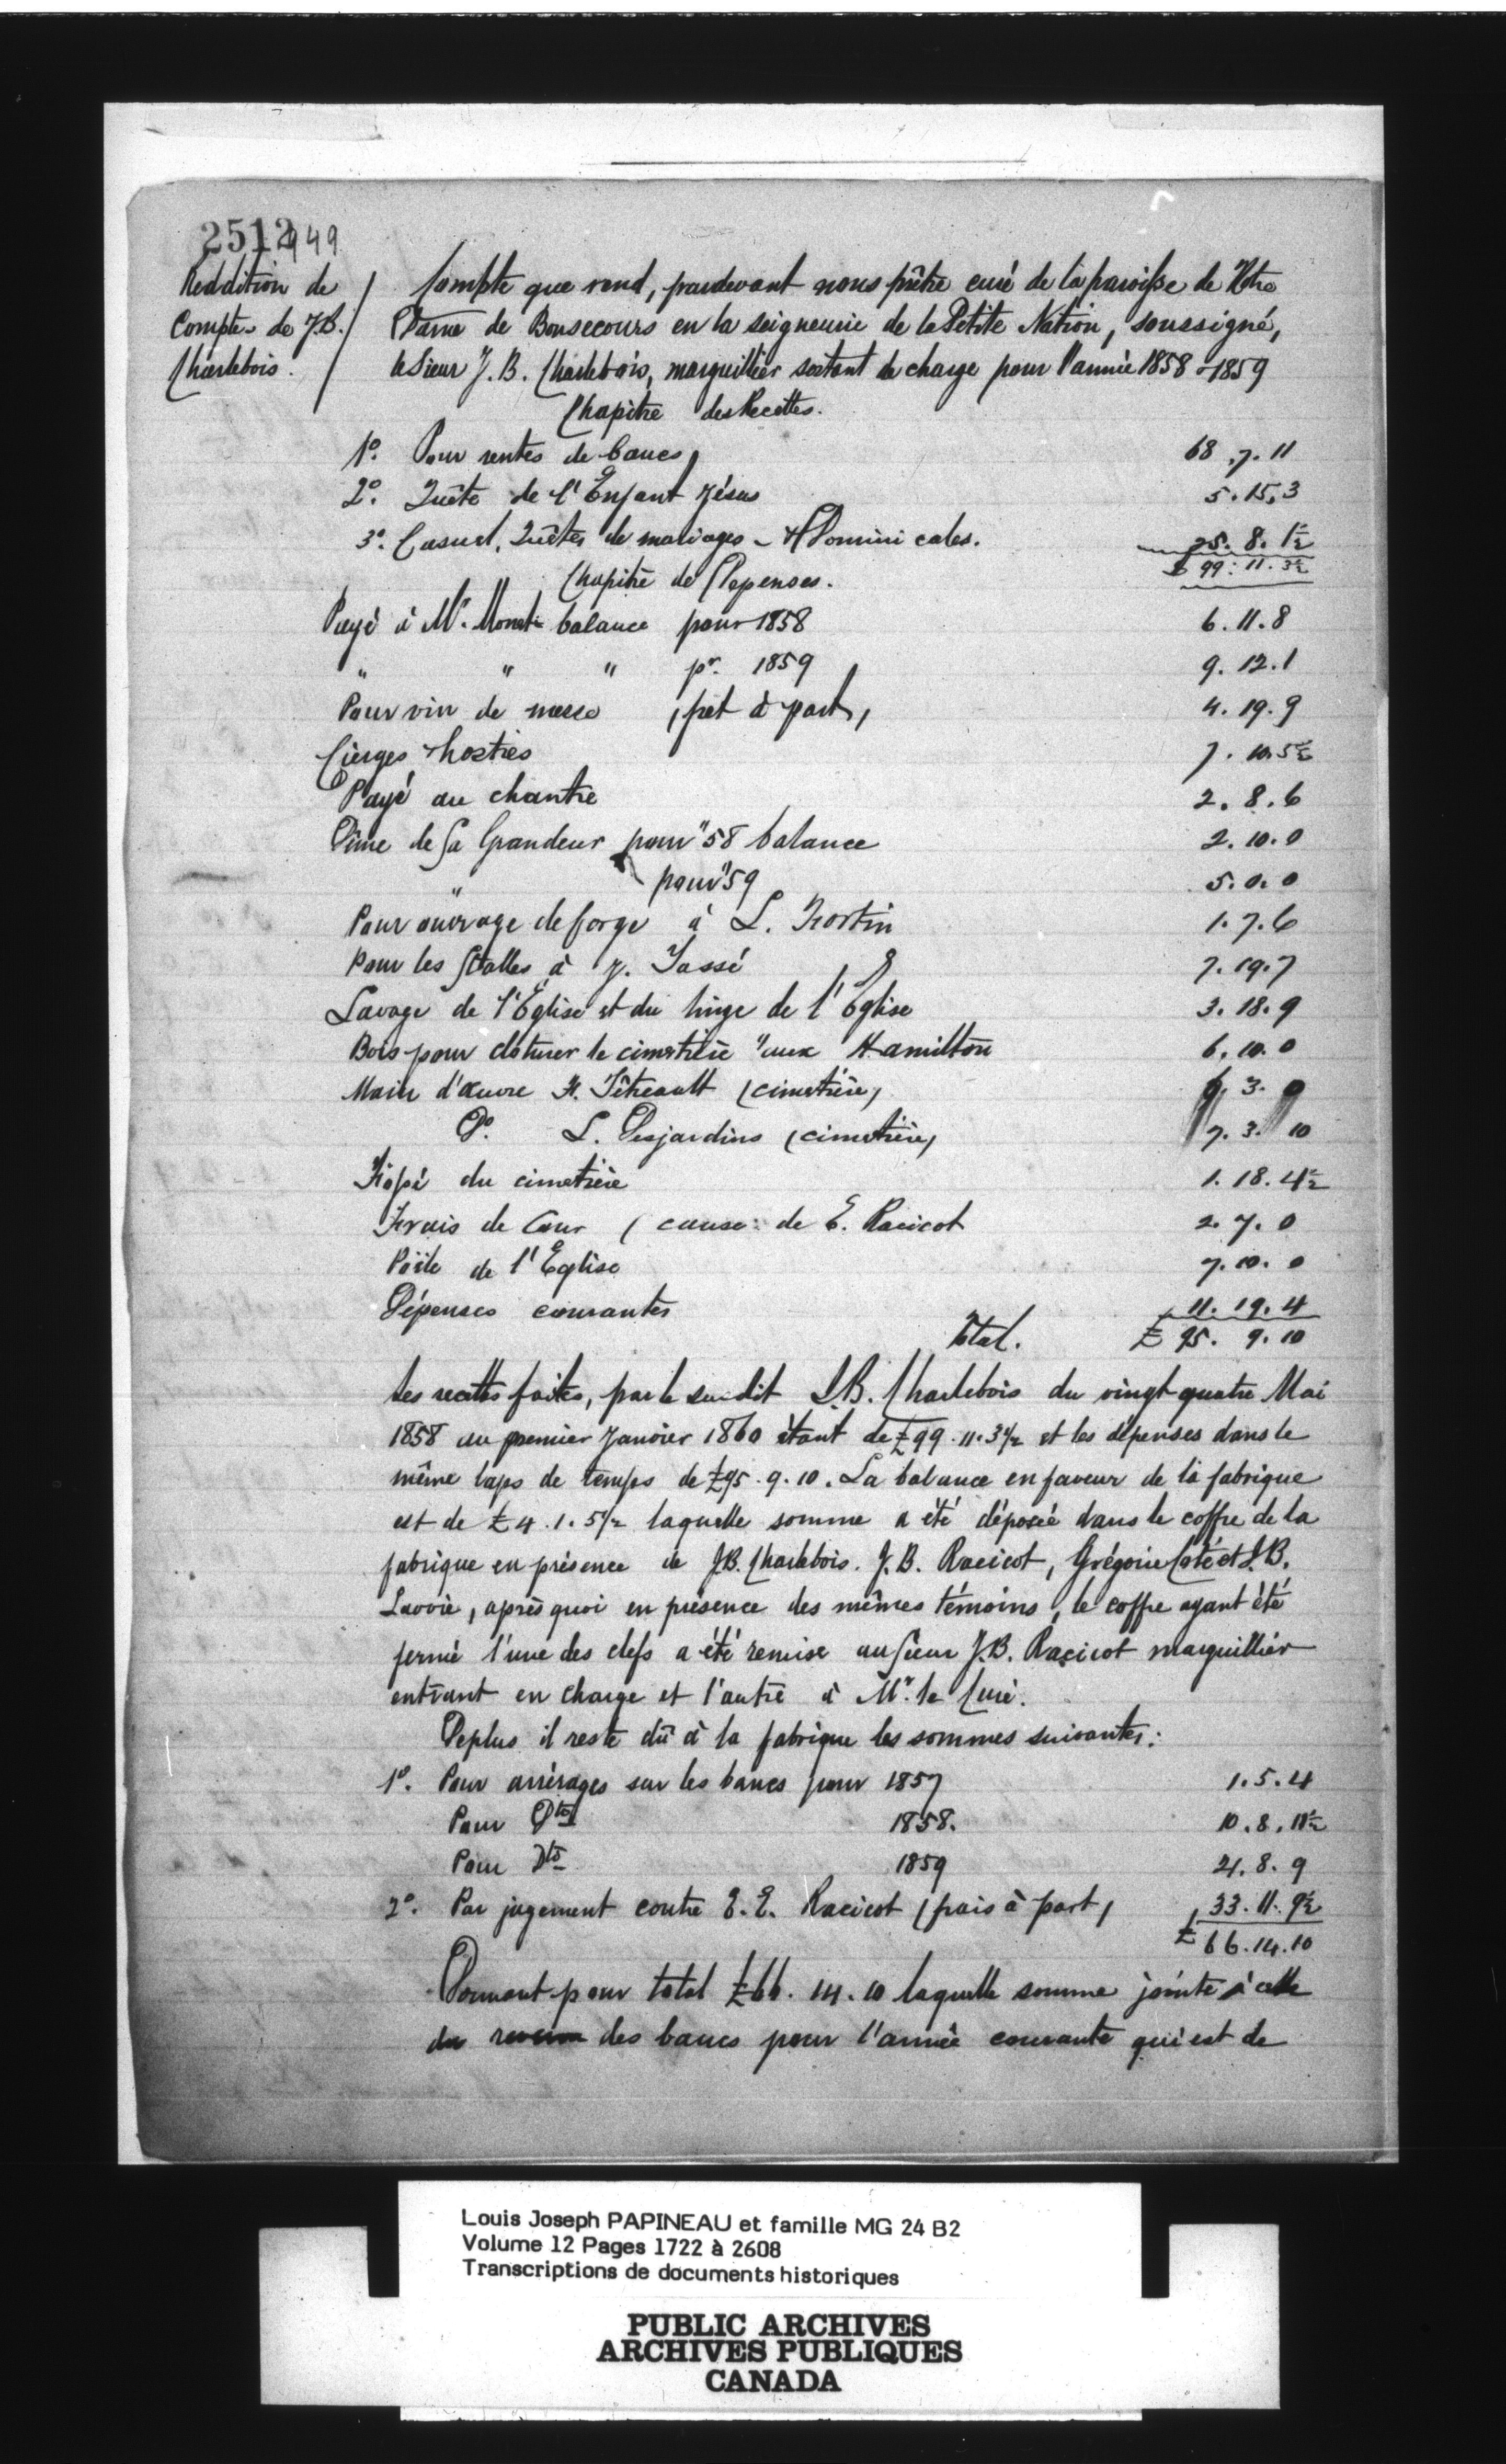 2512
949
Reddition de
Compte de J.B.
Charlebois.
Compte que rend, pardevant nous prêtre curé de la paroisse de Notre
Dame de Bonsecours en la seigneurie de la Petite Nation, soussigné,
le Sieur J. B. Charlebois, marguillier sortant de charge pour l'année 1858 & 1859
Chapitre des Recettes.
1º. Pour rentes de bancs 68.7.11
2º. Quête de l'Enfant Jésus 5.15.3
3º. Casuel, Quêtes de mariages & Dominicales. 25.8.1½
£ 99:11.3½
Chapitre de Dépenses.
Payé à Mr. balance pour 1858 6.11.8
" " " pr. 1859 9.12.1
Pour vin de messe (fret à part) 4.19.9
Cierges & hosties 7.10.5½
Payé au chantre 2.8.6
Dime de Sa Grandeur pour "58 balance 2.10.0
" pour "59 5.0.0
Pour ouvrage de forge à L. Fortin 1.7.6
Pour les Stalles à J. Tassé 7.19.7
Lavage de l'Église et du linge de l'Église 3.18.9
Bois pour cloturer le cimetière "aux Hamilton 6.10.0
Main d'œuvre H. Tétreault (cimetière) 6.3.0
Do. L. Desjardins (cimetière) 7.3.10
Fossé du cimetière 1.18.4½
Frais de Cour (cause: de E. Racicot 2.7.0
Poële de l'Eglise 7.10.0
Dépenses courantes 11.19.4
Total. £ 95.9.10
Les recettes faites, par le susdit J.B. Charlebois du vingt quatre Mai
1858 au premier Janvier 1860 étant de £99.11.3½ et les dépenses dans le
même laps de temps de £95.9.10. La balance en faveur de la fabrique
est de £4.1.5½ laquelle somme a été déposée dans le coffre de la
fabrique en présence de J.B. Charlebois. J.B. Racicot, Grégoire Coté et J.B.
Lavoie, après quoi en présence des mêmes témoins, le coffre ayant été
fermé l'une des clefs a été remise au Sieur J.B. Racicot marguillier
entrant en charge et l'autre à Mr. le Curé.
Deplus il reste dû à la fabrique les sommes suivantes:
1º. Pour arrérages sur les bancs pour 1857 1.5.4
Pour Dto 1858. 10.8.11½
Pour Dto 1859 21.8.9
2º. Par jugement contre E. E. Racicot (frais à part) 33.11.9½
£ 66.14.10
Donnant pour total £66.14.10 laquelle somme jointe à celle
des bancs pour l'année courante qui est de
Louis Joseph PAPINEAU et famille MG 24 B2
Volume 12 Pages 1722 à 2608
Transcriptions de documents historiques
PUBLIC ARCHIVES
ARCHIVES PUBLIQUES
CANADA